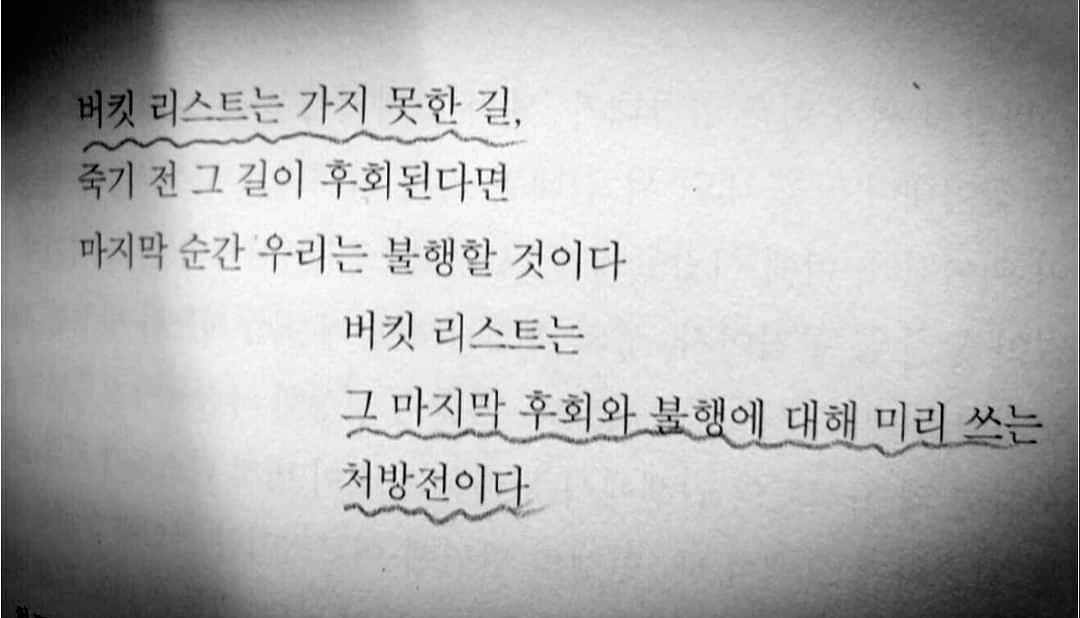 버킷 리스트는 가지 못한 길,
죽기 전 그 길이 후회된다면
마지막 순간 우리는 불행할 것이다
버킷 리스트는
그 마지막 후회와 불행에 대해 미리 쓰는
처방전이다